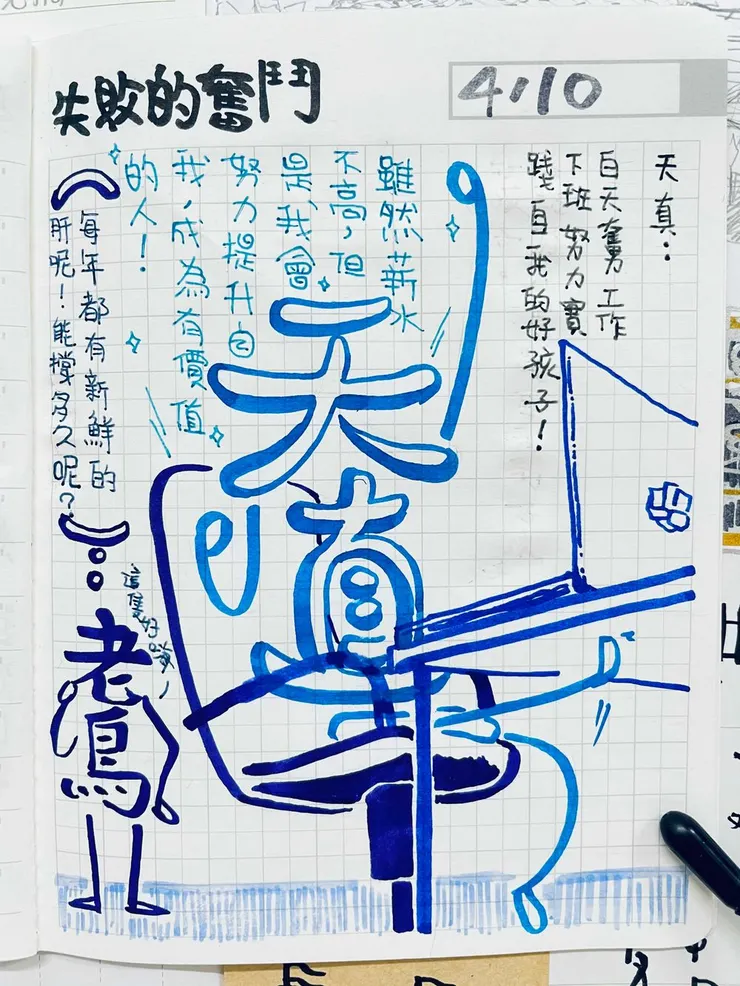 失敗的奮鬥
4/10
天真：
白天奮勇工作
下班努力實
踐自我的好孩子！
雖然薪水
不高，但
是，我會
努力提升自
我，成為有價值
的人！
天真
每年都有新鮮的
肝呢！能撐多久呢？
這隻好
老鳥